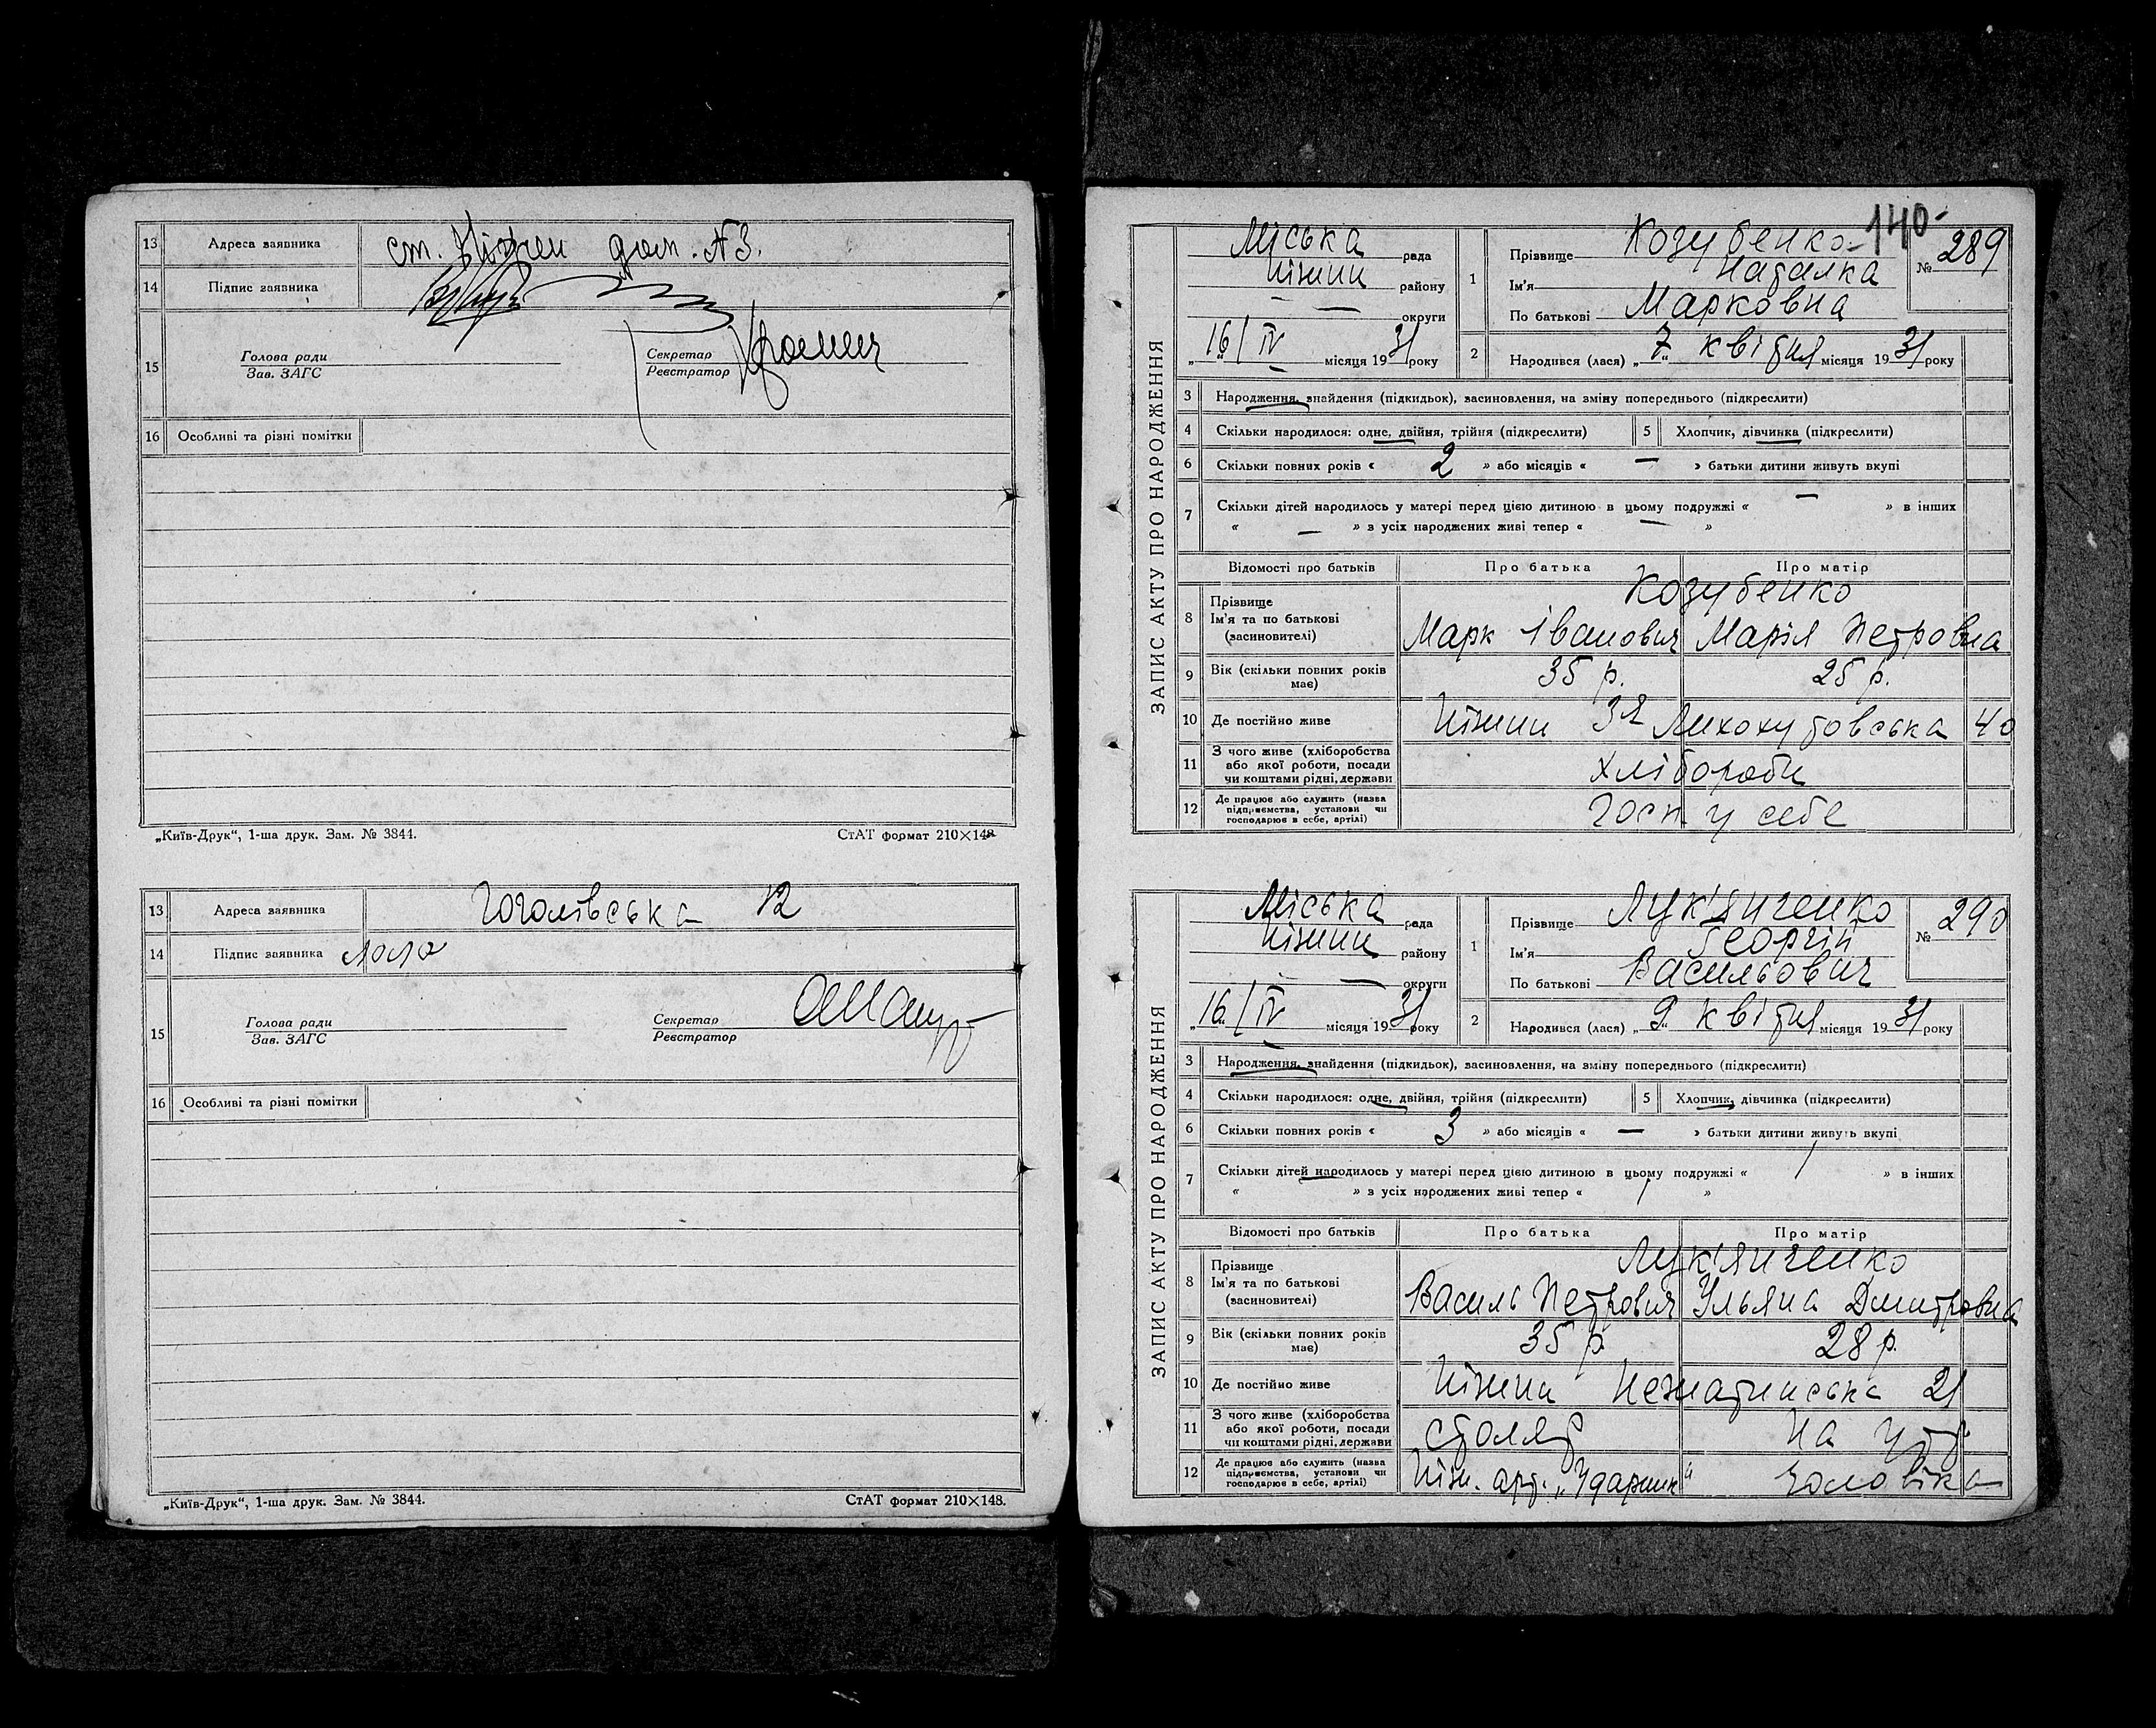 13 Адреса заявника ст. Ніжен дом. №3.
14 Підпис заявника
15 Голова ради
Зав. ЗАГС
Секретар
Реєстратор
16 Особливі та різні помітки
„Київ-Друк“, 1-ша друк. Зам. № 3844. СтАТ формат 210×148
13 Адреса заявника Гоголівська 12
14 Підпис заявника
15 Голова ради
Зав. ЗАГС
Секретар
Реєстратор
16 Особливі та різні помітки
„Київ-Друк“, 1-ша друк. Зам. № 3844. СтАТ формат 210×148.
140
ЗАПИС АКТУ ПРО НАРОДЖЕННЯ
Міська рада
Ніжин району
— — округи
„16“/IV місяця 1931 року
1 Прізвище Козубенко № 289
Ім'я Наталка
По батькові Марковна
2 Народився (лася) „7“ квітня місяця 1931 року
3 Народження, знайдення (підкидьок), васиновлення, на зміну попереднього (підкреслити)
4 Скільки народилося: одне, двійня, трійня (підкреслити) 5 Хлопчик, дівчинка (підкреслити)
6 Скільки повних років « 2 » або місяців « — » батьки дитини живуть вкупі
7 Скільки дітей народилось у матері перед цією дитиною в цьому подружжі « — » в інших
« — » з усіх народжених живі тепер « — »
Відомості про батьків Про батька Про матір
8 Прізвище Козубенко
Ім'я та по батькові Марк Іванович Марія Петровна
(васиновителі)
9 Вік (скільки повних років має) 35 р. 25 р.
10 Де постійно живе Ніжин 3я Лихохутовська 40
11 З чого живе (хліборобства
або якої роботи, посади Хлібороби
чи коштами рідні, держави
12 Де працює або служить (назва
підприємства, установи чи Госп. у себе
господарює в себе, артілі)
ЗАПИС АКТУ ПРО НАРОДЖЕННЯ
Міська рада
Ніжин району
— — округи
„16“/IV місяця 1931 року
1 Прізвище Лук'янченко № 290
Ім'я Георгій
По батькові Васильович
2 Народився (лася) „9“ квітня місяця 1931 року
3 Народження, знайдення (підкидьок), васиновлення, на зміну попереднього (підкреслити)
4 Скільки народилося: одне, двійня, трійня (підкреслити) 5 Хлопчик, дівчинка (підкреслити)
6 Скільки повних років « 3 » або місяців « — » батьки дитини живуть вкупі
7 Скільки дітей народилось у матері перед цією дитиною в цьому подружжі « 1 » в інших
« » з усіх народжених живі тепер « 1 »
Відомості про батьків Про батька Про матір
8 Прізвище Лук'янченко
Ім'я та по батькові Василь Петрович Ульяна Дмитровна
(васиновителі)
9 Вік (скільки повних років має) 35 р. 28 р.
10 Де постійно живе Ніжин 21
11 З чого живе (хліборобства
або якої роботи, посади столяр на утр.
чи коштами рідні, держави
12 Де працює або служить (назва
підприємства, установи чи Ніж. арт. „Ударник“ чоловіка
господарює в себе, артілі)